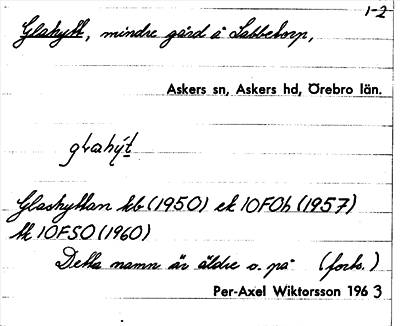 1-2
Glashytt, mindre gård å Sabbetorp,
Askers sn, Askers hd, Örebro län.
glahýt
Glashyttan kb (1950) ek 10F0h (1957)
tk 10FSO (1960)
Detta namn är äldre o. på (forts.)
Per-Axel Wiktorsson 1963